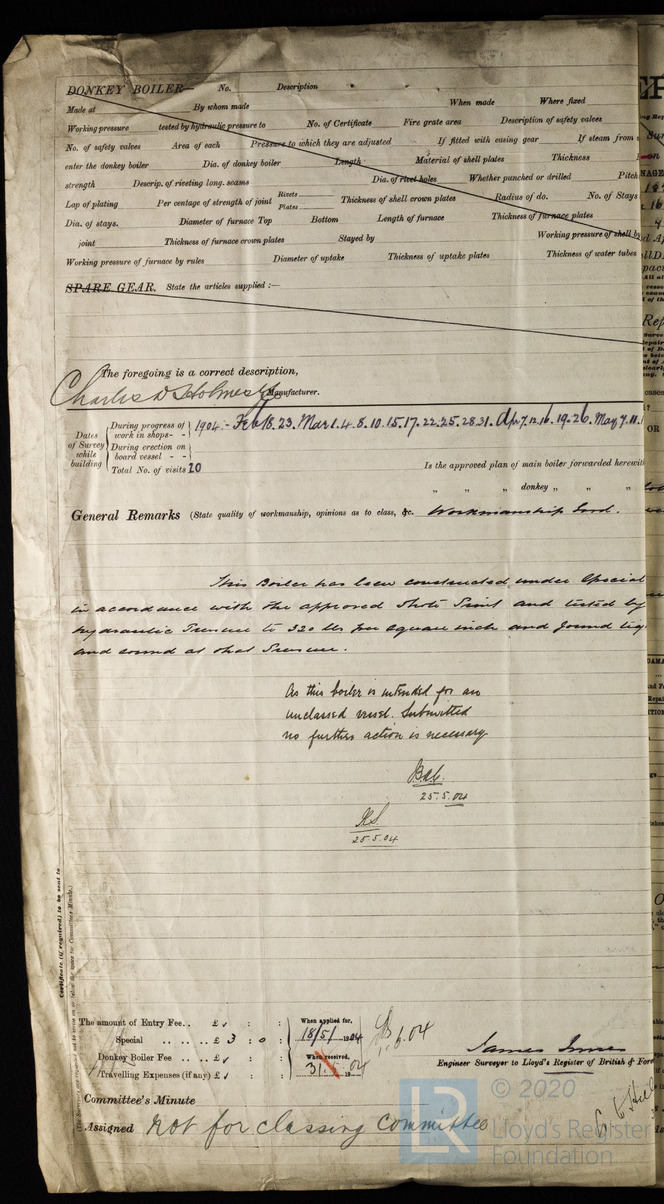 DONKEY BOILER— No. Description
Made at By whom made When made Where fixed
Working pressure tested by hydraulic pressure to No. of Certificate Fire grate area Description of safety valves
No. of safety valves Area of each Pressure to which they are adjusted If fitted with easing gear If steam from
enter the donkey boiler Dia. of donkey boiler Length Material of shell plates Thickness
strength Descrip. of riveting long. seams Dia. of rivet holes Whether punched or drilled Pitch
Lap of plating Per centage of strength of joint Rivets Plates Thickness of shell crown plates Radius of do. No. of Stays
Dia. of stays. Diameter of furnace Top Bottom Length of furnace Thickness of furnace plates
joint Thickness of furnace crown plates Stayed by Working pressure of shell by
Working pressure of furnace by rules Diameter of uptake Thickness of uptake plates Thickness of water tubes
SPARE GEAR. State the articles supplied :—
The foregoing is a correct description,
Charles D Holmes & Co Manufacturer.
Dates of Survey while building
During progress of work in shops - - 1904 :- Feb 18. 23. Mar 1. 4. 8. 10. 15. 17. 22. 25. 28. 31. Apr 7. 12. 16. 19. 26. May 7. 11.
During erection on board vessel - -
Total No. of visits 20
Is the approved plan of main boiler forwarded herewith
" " " donkey " " "
General Remarks (State quality of workmanship, opinions as to class, &c. Workmanship Good.
This Boiler has been constructed under Special
in accordance with the approved Photo Print and tested by
hydraulic Pressure to 320 lbs per square inch and found tig
and sound at that Pressure.
As this boiler is intended for an
unclassed vessel. Submitted
no further action is necessary
25.5.04
25.5.04
Certificate (if required) to be sent to
The amount of Entry Fee .. £ : : When applied for,
Special .. .. £ 3 : 0 : 18/5/1904
Donkey Boiler Fee .. .. £ : : When received,
Travelling Expenses (if any) £ : : 31.5.1904
James Innes
Engineer Surveyor to Lloyd's Register of British & For
Committee's Minute
Assigned Not for classing committee
LR © 2020
Lloyd's Register
Foundation